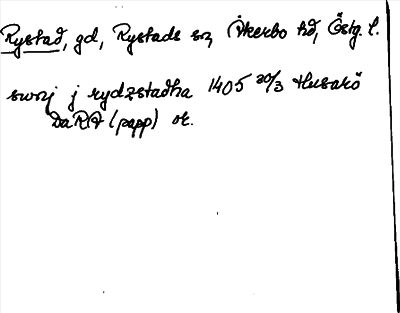 Rystad, gd, Rystads sn, Åkerbo hd, Östg. l.
swnj j rydzstadha 1405 30/3 Husarö
DaRA (papp) or.